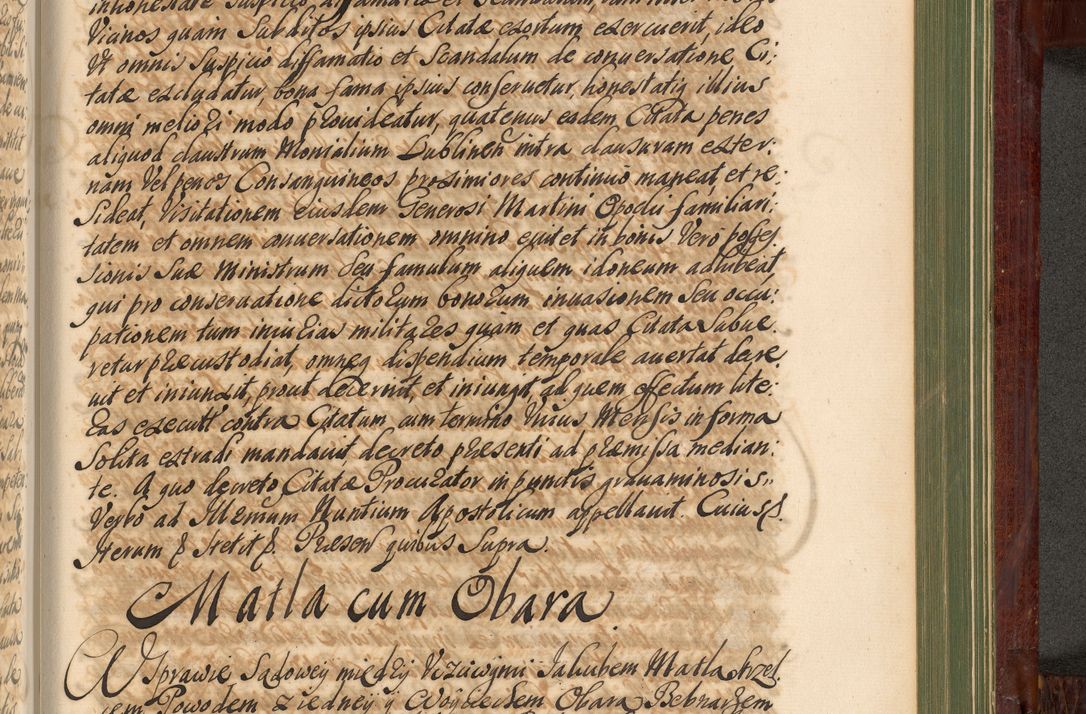 Vicinos quam Subditos ipsius Citatæ exortum exercuerit, ideo
Vt omnis Suspicio diffamatio et Scandalum de conuersatione Ci:
tatæ excludatur, bona fama ipsius conseruetur, honestatiq illius
omni meliori modo prouideatur, quatenus eadem Citata penes
aliquod claustrum Monialium Lublinen intra clausuram exter:
nam Vel penes Consanguineos proximiores continuo maneat, et re:
sideat, Visitationem eiusdem Generosi Martini Opocki familiari:
tatem et omnem conuersationem omnino euitet in bonis Vero posses
sionis Suæ Ministrum Seu famulum aliquem idoneum adhibeat
qui pro conseruatione dictorum bonorum inuasionem Seu occu:
pationem tum iniurias militares quam et quas Citata Subue.
retur præcustodiat, omneq dispendium temporale auertat decre
uit et iniunxit, prout decernit, et iniungit, ad quem effectum lite:
ras executt contra Citatum cum termino Vnius Mensis in forma
Solita extradi mandauit decreto præsenti ad præmissa median:
te. A quo decreto Citatæ Procurator in punctis grauaminosis
Verbo ad Illmum Nuntium Apostolicum appellauit. Cuius
Iterum & stetit &. Præsen quibus Supra.
Matla cum Obara
W Sprawie Sądowey między Vczciwymi Jakubem Matla strzel
cem Powodem z iedney y Woyciechem Obara Bebnarzem